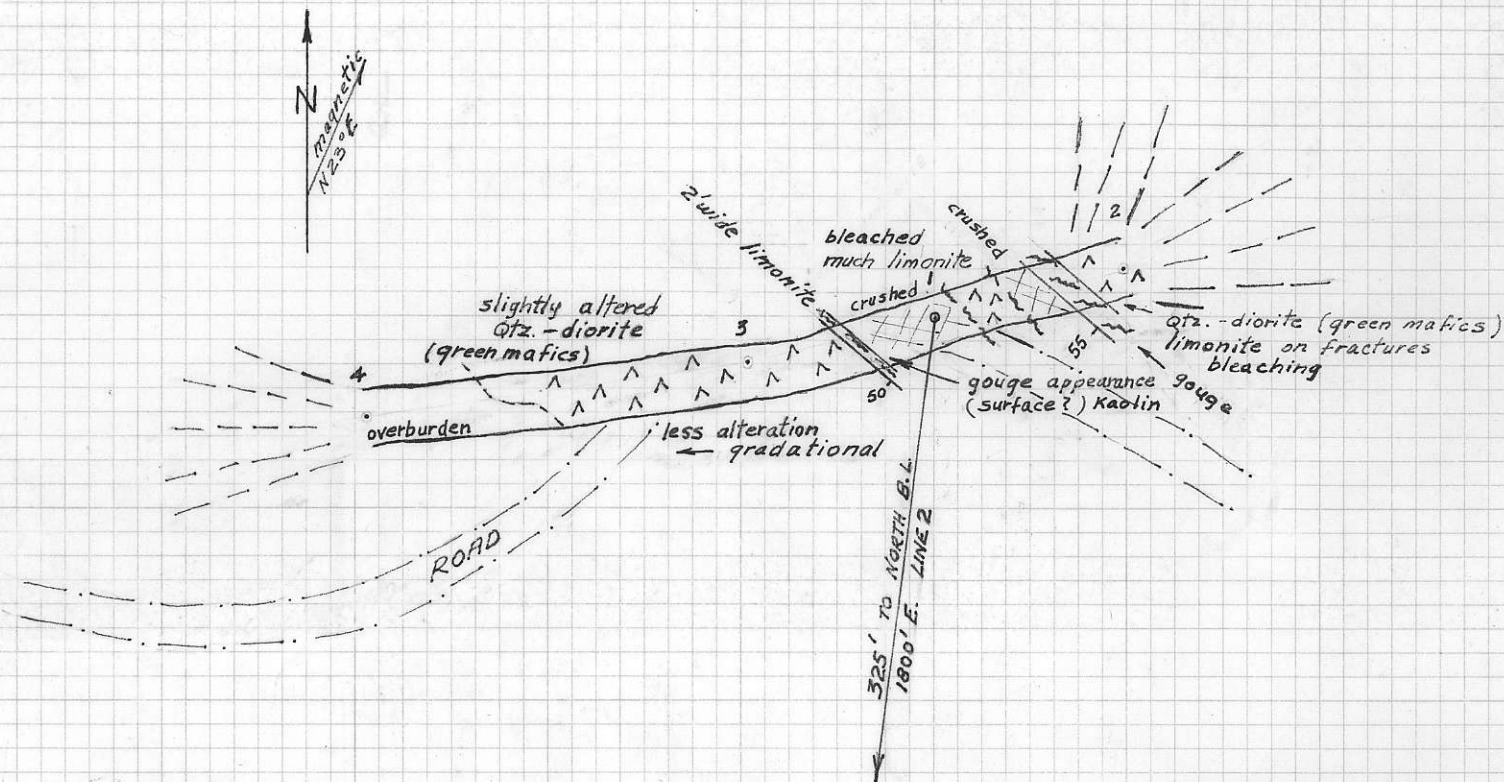 N
magnetic
N 23° E
2' wide limonite
bleached
much limonite
crushed
1
crushed
2
slightly altered
Qtz. - diorite
(green mafics)
3
4
overburden
less alteration
← gradational
50
55
gouge appearance
(surface?) Kaolin
gouge
Qtz. - diorite (green mafics)
limonite on fractures
bleaching
ROAD
325' TO NORTH B.L.
1800' E. LINE 2